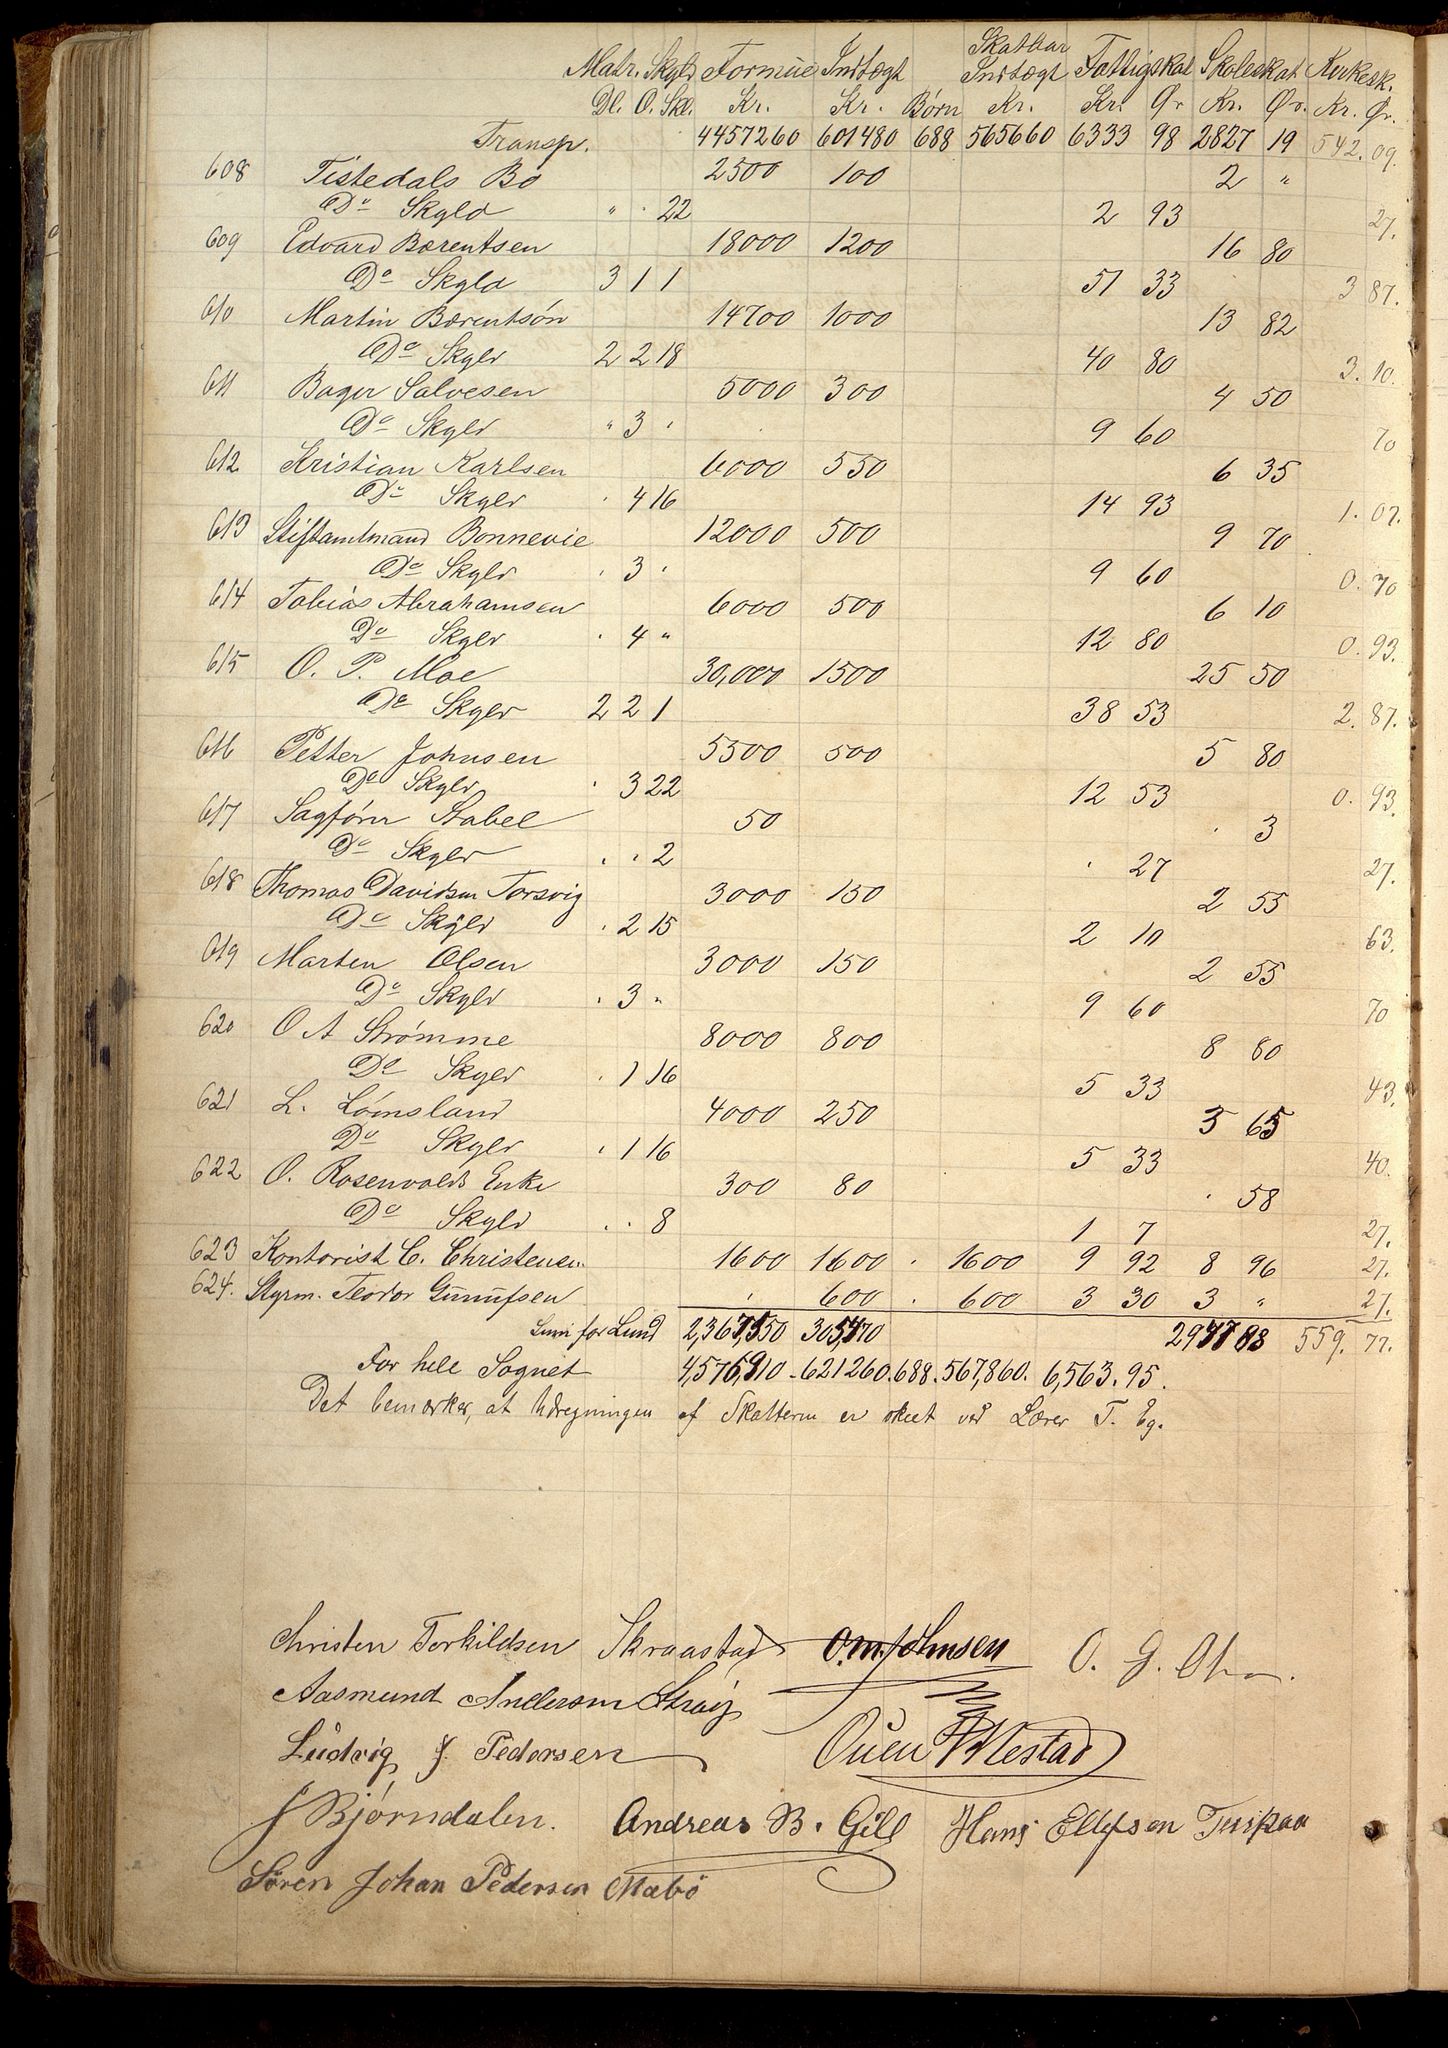 Matr. Skyld Formue Indtægt Skatbar Indtægt Fattigskat Skoleskat Kirkesk.
Dl. O. Skl. Kr. Kr. Børn Kr. Kr. Ør Kr. Ør. Kr. Ør.
Transp. 4457260 601480 688 565660 6333 98 2827 19 542. 09.
608 Tistedals Bo 2500 100 2 "
Do Skyld " . 22 2 93 27.
609 Edvard Bærentsen 18000 1200 16 80
Do Skyld 3 1 1 51 33 3 87.
610 Martin Bærentsøn 14700 1000 13 82
Do Skyld 2 2 18 40 80 3. 10.
611 Bager Salvesen 5000 300 4 50
Do Skyld " 3 . 9 60 70
612 Kristian Karlsen 6000 550 6 35
Do Skyld . 4 16 14 93 1. 07.
613 Stiftamtmand Bonnevie 12000 500 9 70
Do Skyld . 3 . 9 60 0. 70
614 Tobias Abrahamsen 6000 500 6 10
Do Skyld . 4 " 12 80 0. 93.
615 O. P. Moe 30,000 1500 25 50
Do Skyld 2 2 1 38 53 2. 87.
616 Petter Johnsen 5500 500 5 80
Do Skyld . 3 22 12 53 0. 93.
617 Sagfører Stabel 50 . 3
Do Skyld . . 2 . 27 27.
618 Thomas Davidsen Torsvig 3000 150 2 55
Do Skyld . 2 15 2 10 63.
619 Marten Olsen 3000 150 2 55
Do Skyld . 3 " 9 60 70
620 O A Strømme 8000 800 8 80
Do Skyld . 1 16 5 33 43.
621 L. Lømsland 4000 250 3 65
Do Skyld . 1 16 5 33 40.
622 O. Rosenvolds Enke 300 80 . 58
Do Skyld . . 8 1 7 27.
623 Kontorist C. Christensen 1600 1600 . 1600 9 92 8 96 27.
624. Styrm. Teodor Gunufsen . 600 . 600 3 30 3 " 27.
Sum for Lund 2,367,550 305,470 2977 88 559. 77.
For hele Sognet 4,576,910 621260. 688. 567,860. 6,563. 95.
Det bemærkes, at Udregningen af Skatterne er skeet ved Lærer T. Eg.
Christen Terkildsen Skraastad O.M. Johnsen O. G.
Aasmund Andersen Straij
Ludvig J. Pedersen Ouen Westad
J Bjørndalen. Andreas B. Gill Hans Ellefsen
Søren Johan Pedersen Mæbø